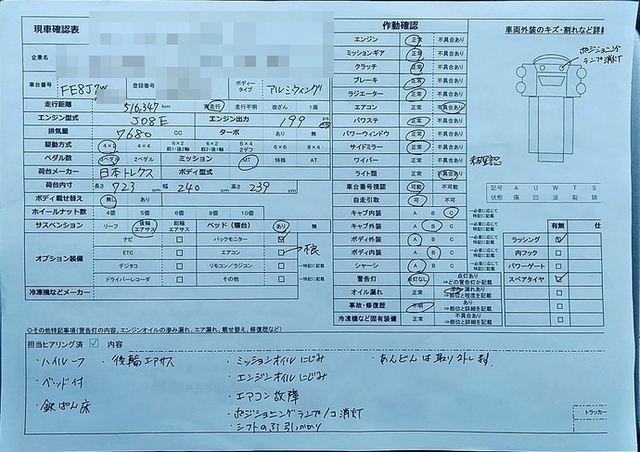 現車確認表
企業名
車台番号 FE8J7W 登録番号 ボディータイプ アルミウィング
走行距離 516,347 km 実走行 走行不明 改ざん 1周
エンジン型式 J08E エンジン出力 199 ps
排気量 7680 CC ターボ あり 無
駆動方式 4×2 4×4 6×2 前1・後2軸 6×2 前2・後1軸 6×2 2デフ 6×4 6×6 8×4
ペダル数 3ペダル 2ペダル ミッション MT 特殊 AT
荷台メーカー 日本トレクス ボディ型式
荷台内寸 長さ 923 cm 幅 240 cm 高さ 239 cm
ボディ載せ替え 無し あり
ホイールナット数 4個 5個 6個 8個 10個
サスペンション リーフ 後輪エアサス 総輪エアサス ベッド(寝台) あり 無
オプション装備
ナビ バックモニター
ETC エアコン
デジタコ リモコン/ラジコン
ドライブレコーダー その他
冷凍機などメーカー
動作確認
エンジン 正常 不具合あり
ミッションギア 正常 不具合あり
クラッチ 正常 不具合あり
ブレーキ 正常 不具合あり
ラジエーター 正常 不具合あり
エアコン 正常 不具合あり
パワステ 正常 不具合あり
パワーウィンドウ 正常 不具合あり
サイドミラー 正常 不具合あり
ワイパー 正常 不具合あり 未確認
ライト類 正常 不具合あり
車台番号視認 可能 不可能
自走引取 可 不可
キャブ内装 A B C
キャブ外装 A B C
ボディ外装 A B C
ボディ内装 A B C
シャーシ A B C
警告灯 点灯なし 点灯あり ⇒どの警告灯か記載
オイル漏れ 正常 滲み 漏れあり ⇒部位と程度を記載
事故・修復歴 不明 あり ⇒部位と詳細を記載
冷凍機など固有装備 正常 不具合あり ⇒部位と詳細を記載
車両外装のキズ・割れなど詳細
ポジショニングランプ消灯
記号 A U W T S
状態 傷 凹 波 裂 錆
有無 仕
ラッシング
内フック
パワーゲート
スペアタイヤ
◇その他特記事項(警告灯の内容、エンジンオイルの滲み漏れ、エア漏れ、載せ替え、修復歴など)
担当ヒアリング済 内容
・ハイルーフ ・後輪エアサス ・ミッションオイルにじみ ・あんどんは取り外します。
・ベッド付 ・エンジンオイルにじみ
・鉄ばん床 ・エアコン故障
・ポジショニングランプ1コ消灯
トラッカー